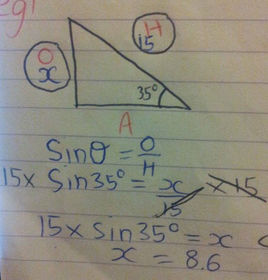 eg1
O
x
H
15
35°
A
Sinθ = O/H
15x Sin35° = x/15 x 15
15 x Sin35° = x
x = 8.6